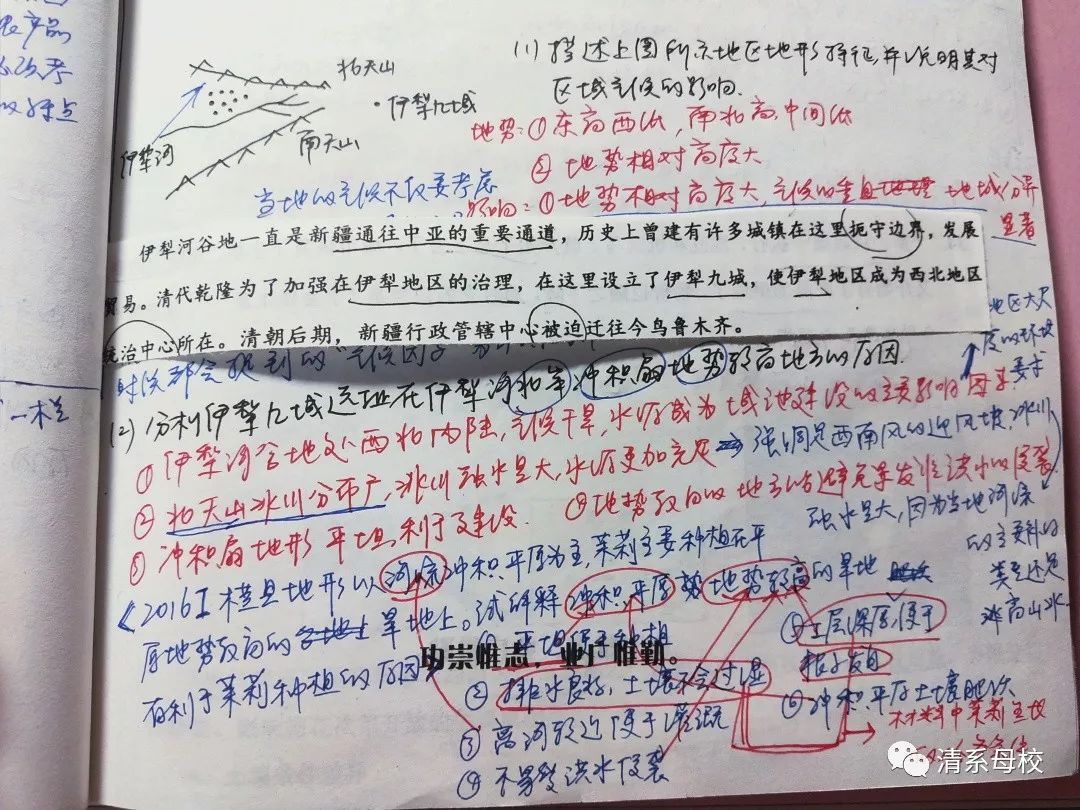 农产品
的特点
北天山
·伊犁九城
伊犁河
南天山
(1) 描述上图所示地区地形特征,并说明其对
区域气候的影响.
地势:①东高西低,南北高,中间低
②地势相对高度大
影响:①地势相对高度大,气候的垂直地域分异
显著
当地的气候不仅要考虑
伊犁河谷地一直是新疆通往中亚的重要通道,历史上曾建有许多城镇在这里扼守边界,发展
贸易。清代乾隆为了加强在伊犁地区的治理,在这里设立了伊犁九城,使伊犁地区成为西北地区
统治中心所在。清朝后期,新疆行政管辖中心被迫迁往今乌鲁木齐。
(2) 分析伊犁九城选址在伊犁河北岸冲积扇地势较高地方的原因.
①伊犁河谷地处西北内陆,气候干旱,水源成为城池建设的主要影响因素
②北天山冰川分布广,冰川融水量大,水源更加充足
强调是西南风的迎风坡,冰川
融水量大,因为当地河流
的主要补给
类型还是
高山冰
③冲积扇地形平坦,利于建设.
④地势较高的地方能避免暴发性洪水的侵袭
一栏
《2016Ⅰ横县地形以河流冲积平原为主,茉莉主要种植在平
原地势较高的旱地上。试解释冲积平原地势较高的旱地
有利于茉莉种植的原因》
①平坦便于种植
功崇惟志,业广惟勤。
②排水良好,土壤不会过湿
③离河较近便于灌溉
④不易受洪水侵袭
⑤土层深厚,便于
根系发育
⑥冲积平原土壤肥沃
材料中茉莉喜
清系母校